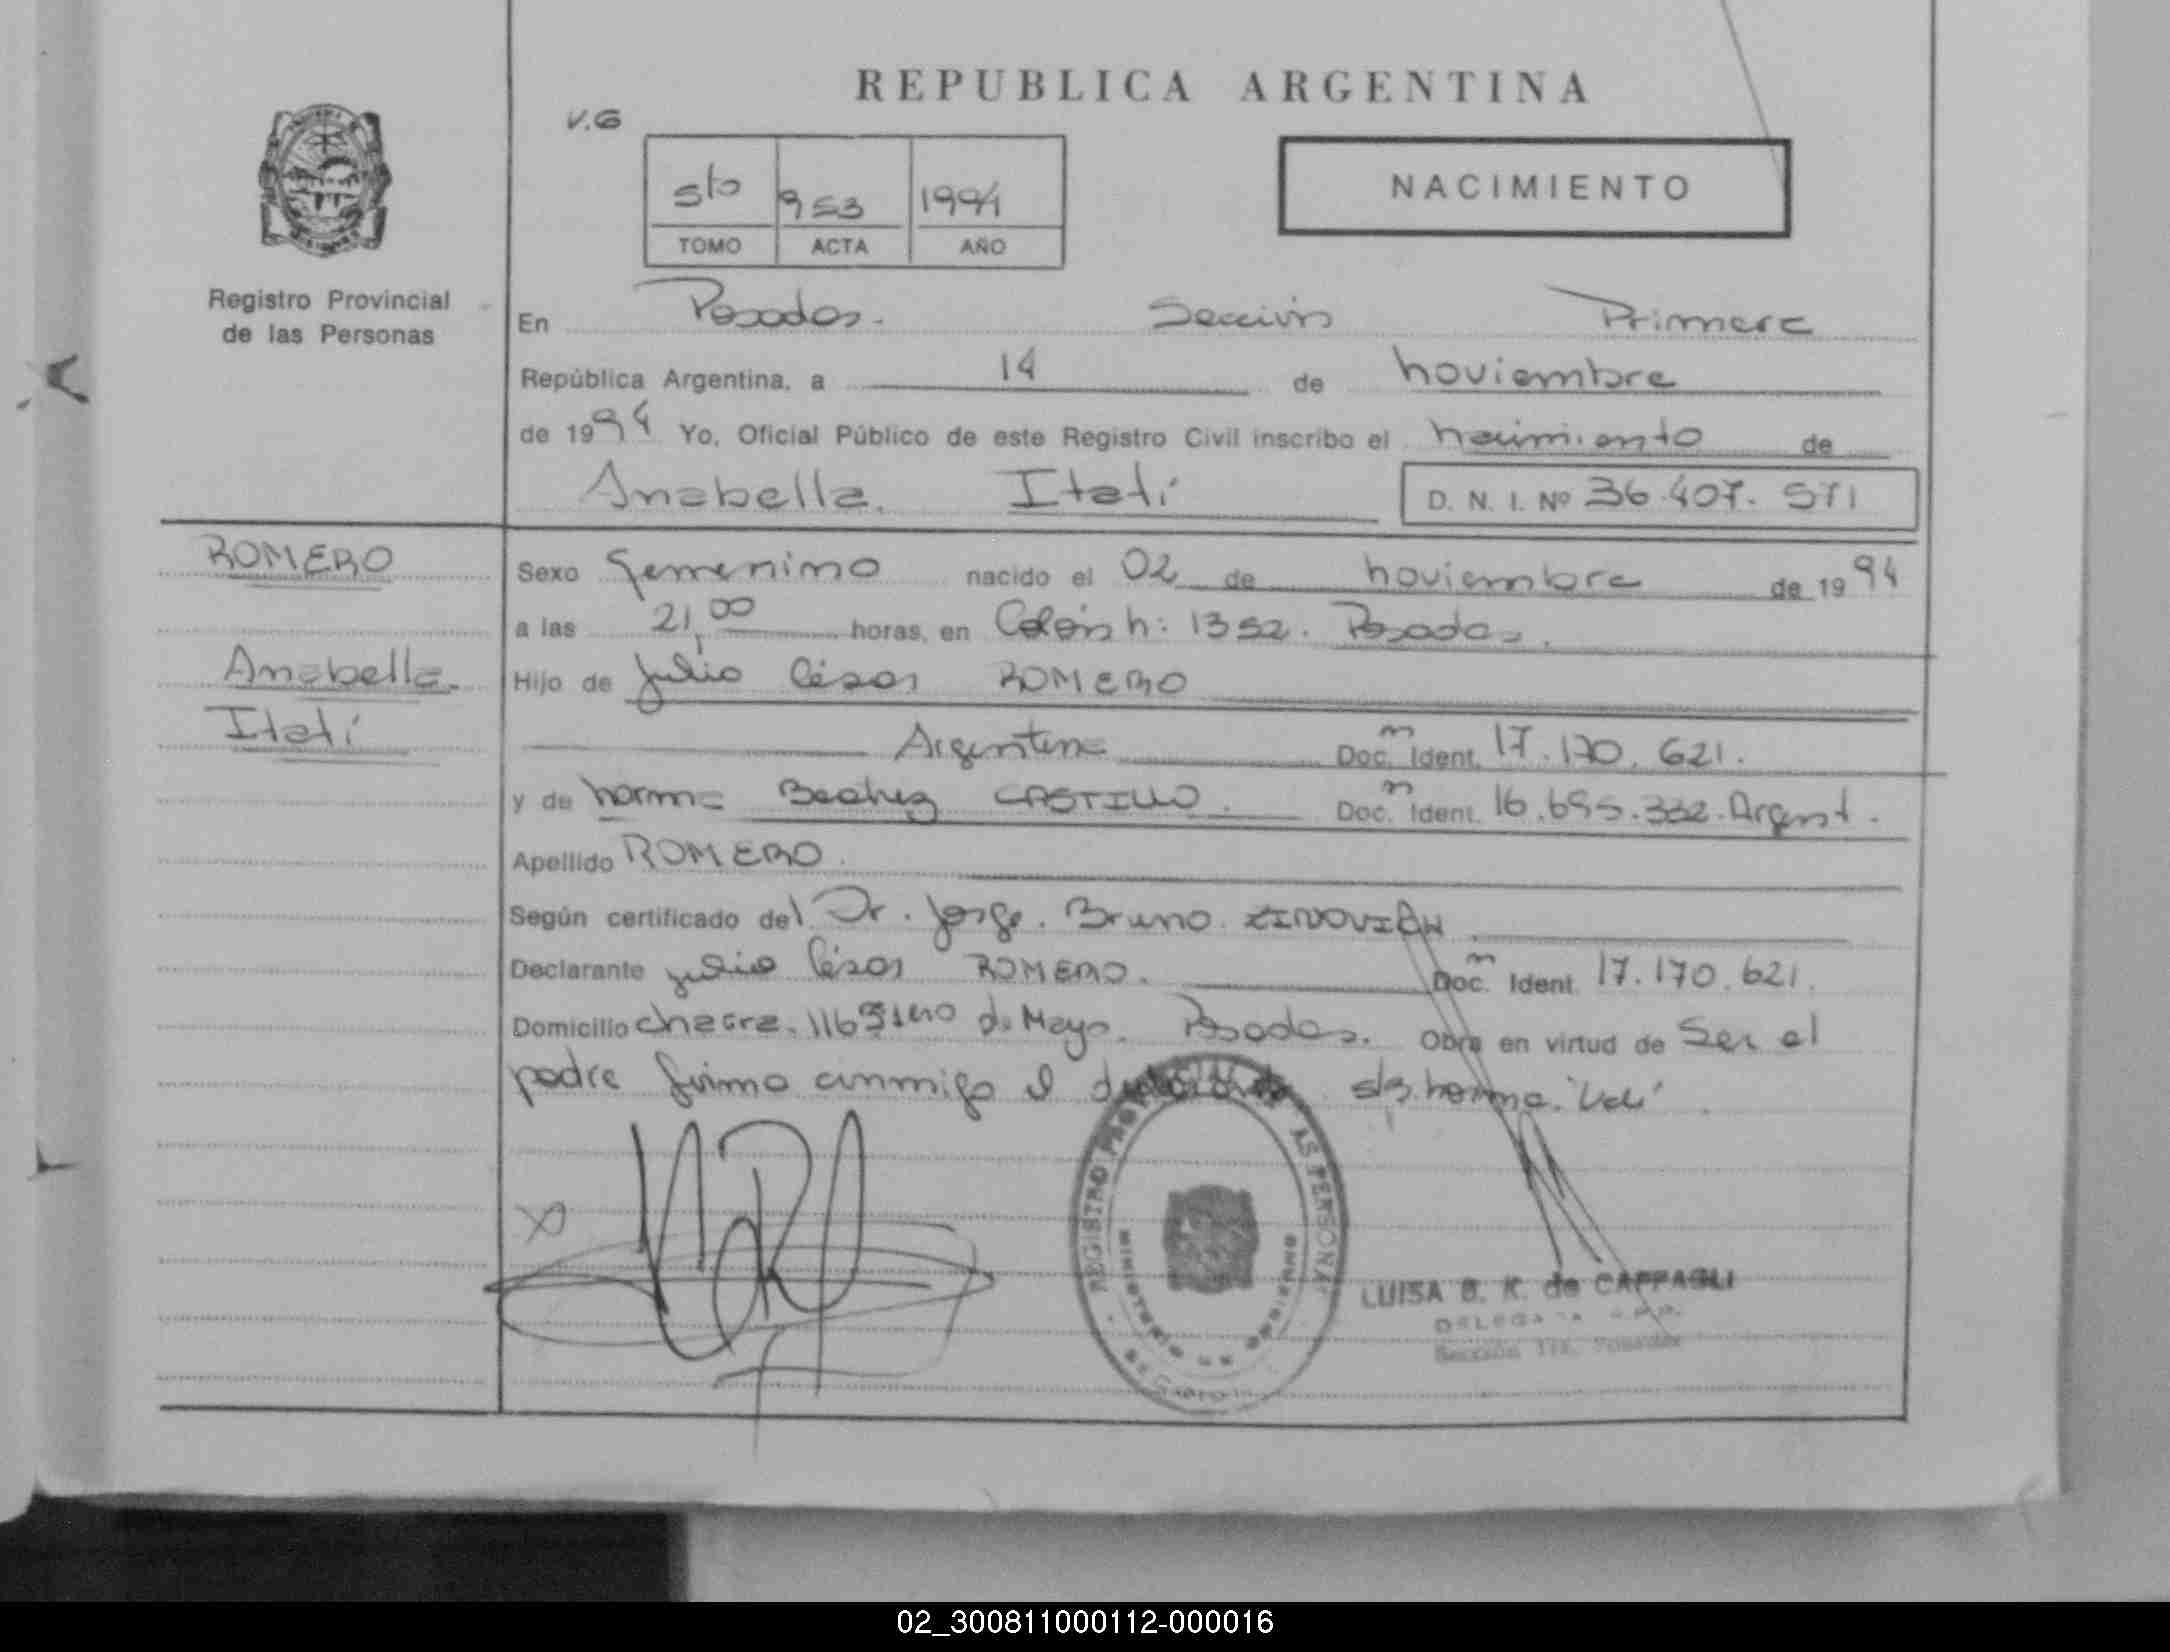 REPUBLICA ARGENTINA
V.G
5to 953 1994
TOMO ACTA AÑO
NACIMIENTO
Registro Provincial
de las Personas
En Posadas. Sección Primera
República Argentina, a 14 de noviembre
de 1994 Yo, Oficial Público de este Registro Civil inscribo el nacimiento de
Anabella Itatí D. N. I. Nº 36.407.571
ROMERO
Anabella
Itatí
Sexo Femenino nacido el 02 de noviembre de 1994
a las 21,00 horas, en Colón n: 1352. Posadas.
Hijo de Julio César ROMERO
Argentina Doc. m Ident. 17.170.621.
y de Norma Beatriz CASTILLO. Doc. m Ident. 16.695.332. Argent.
Apellido ROMERO.
Según certificado del Dr. Jorge. Bruno.
Declarante Julio César ROMERO. Doc. m Ident. 17.170.621.
Domicilio chacra. 116 1ero de Mayo. Posadas. Obra en virtud de Ser el
padre firma conmigo el s/r. norma. "Vale"
REGISTRO PROVINCIAL AS PERSONAS
MINISTERIO DE GOBIERNO
LUISA B. K. de CAFFAGLI
DELEGADA
Sección 1ra. Posadas
02_300811000112-000016